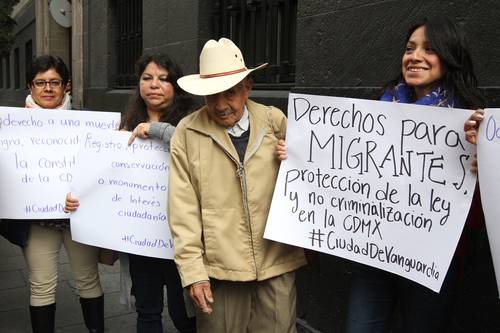 derecho a una muerte
igna, reconocid
la Constit
de la CD
#CiudadDeV
Registro, protecc
conservación
a monumento
de Interés
ciudadanía
#CiudadDeVa
Derechos para
MIGRANTES,
protección de la ley
y no criminalización
en la CDMX
#CiudadDeVanguardia